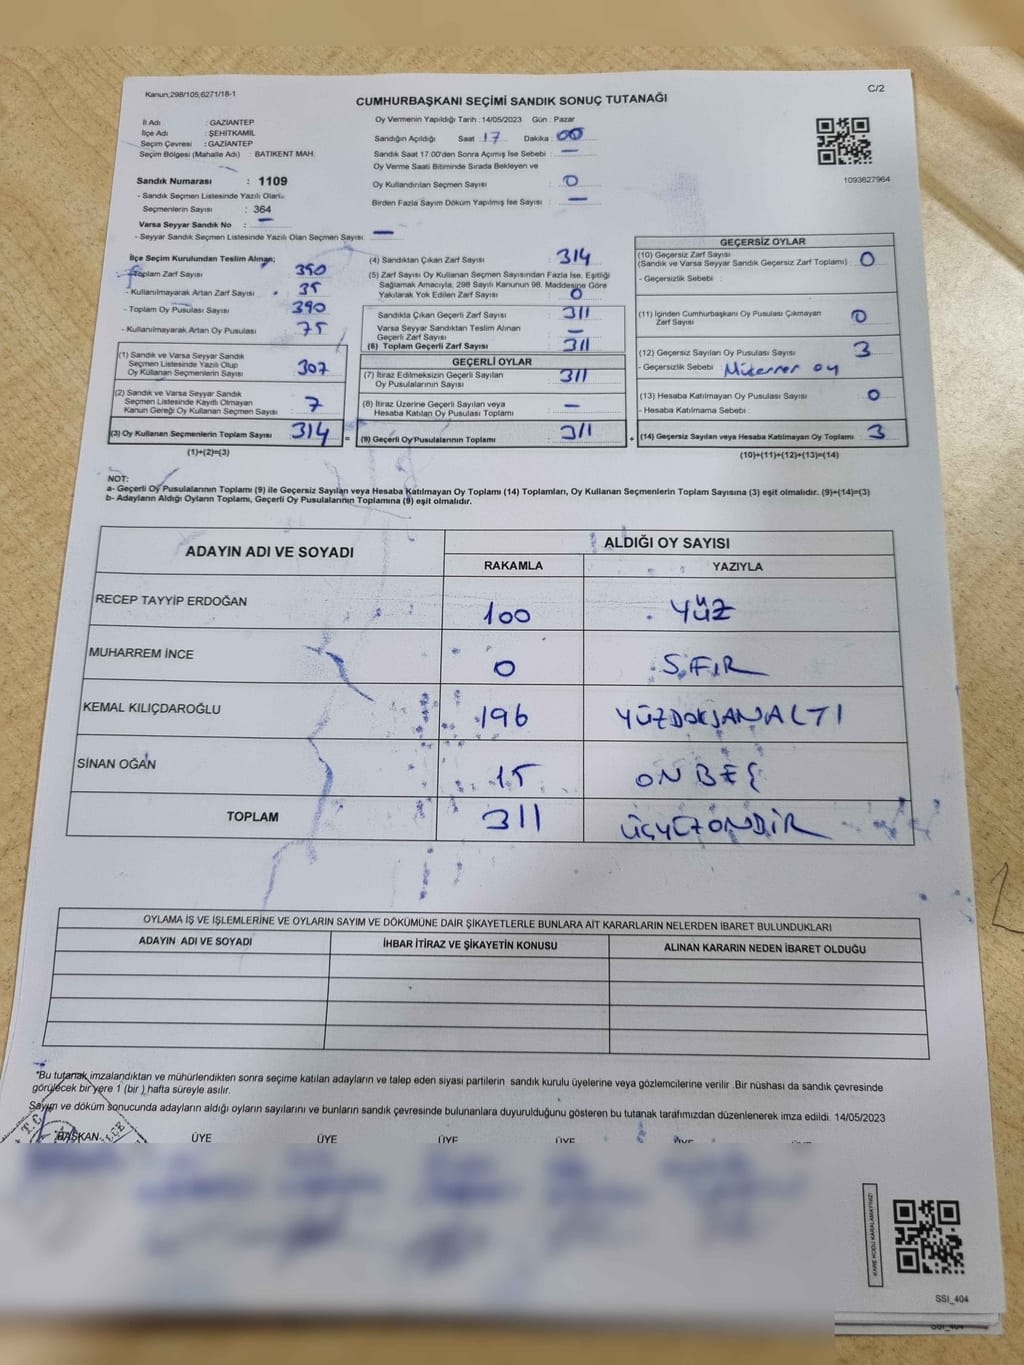 Kanun;298/105;6271/18-1
C/2
CUMHURBAŞKANI SEÇİMİ SANDIK SONUÇ TUTANAĞI
İl Adı : GAZİANTEP
İlçe Adı : ŞEHİTKAMİL
Seçim Çevresi : GAZİANTEP
Seçim Bölgesi (Mahalle Adı) : BATIKENT MAH.
Sandık Numarası : 1109
- Sandık Seçmen Listesinde Yazılı Olan
Seçmenlerin Sayısı : 364
Varsa Seyyar Sandık No : —
- Seyyar Sandık Seçmen Listesinde Yazılı Olan Seçmen Sayısı: —
Oy Vermenin Yapıldığı Tarih : 14/05/2023 Gün : Pazar
Sandığın Açıldığı Saat : 17 Dakika : 00
Sandık Saat 17:00'den Sonra Açımış İse Sebebi : —
Oy Verme Saati Bitiminde Sırada Bekleyen ve
Oy Kullandırılan Seçmen Sayısı : 0
Birden Fazla Sayım Döküm Yapılmış İse Sayısı : —
1093627964
İlçe Seçim Kurulundan Teslim Alınan;
- Toplam Zarf Sayısı 350
- Kullanılmayarak Artan Zarf Sayısı 35
- Toplam Oy Pusulası Sayısı 390
- Kullanılmayarak Artan Oy Pusulası 75
(1) Sandık ve Varsa Seyyar Sandık
Seçmen Listesinde Yazılı Olup
Oy Kullanan Seçmenlerin Sayısı 307
(2) Sandık ve Varsa Seyyar Sandık
Seçmen Listesinde Kayıtlı Olmayan
Kanun Gereği Oy Kullanan Seçmen Sayısı 7
(3) Oy Kullanan Seçmenlerin Toplam Sayısı 314 =
(1)+(2)=(3)
(4) Sandıktan Çıkan Zarf Sayısı 314
(5) Zarf Sayısı Oy Kullanan Seçmen Sayısından Fazla İse, Eşitliği
Sağlamak Amacıyla, 298 Sayılı Kanunun 98. Maddesine Göre
Yakılarak Yok Edilen Zarf Sayısı 0
Sandıkta Çıkan Geçerli Zarf Sayısı 311
Varsa Seyyar Sandıktan Teslim Alınan
Geçerli Zarf Sayısı —
(6) Toplam Geçerli Zarf Sayısı 311
GEÇERLİ OYLAR
(7) İtiraz Edilmeksizin Geçerli Sayılan
Oy Pusulalarının Sayısı 311
(8) İtiraz Üzerine Geçerli Sayılan veya
Hesaba Katılan Oy Pusulası Toplamı —
(9) Geçerli Oy Pusulalarının Toplamı 311 +
GEÇERSİZ OYLAR
(10) Geçersiz Zarf Sayısı
(Sandık ve Varsa Seyyar Sandık Geçersiz Zarf Toplamı) : 0
- Geçersizlik Sebebi :
(11) İçinden Cumhurbaşkanı Oy Pusulası Çıkmayan
Zarf Sayısı 0
(12) Geçersiz Sayılan Oy Pusulası Sayısı 3
- Geçersizlik Sebebi : Mükerrer oy
(13) Hesaba Katılmayan Oy Pusulası Sayısı 0
- Hesaba Katılmama Sebebi :
(14) Geçersiz Sayılan veya Hesaba Katılmayan Oy Toplamı : 3
(10)+(11)+(12)+(13)=(14)
NOT:
a- Geçerli Oy Pusulasının Toplamı (9) ile Geçersiz Sayılan veya Hesaba Katılmayan Oy Toplamı (14) Toplamları, Oy Kullanan Seçmenlerin Toplam Sayısına (3) eşit olmalıdır. (9)+(14)=(3)
b- Adayların Aldığı Oyların Toplamı, Geçerli Oy Pusulalarının Toplamına (9) eşit olmalıdır.
ADAYIN ADI VE SOYADI
ALDIĞI OY SAYISI
RAKAMLA YAZIYLA
RECEP TAYYİP ERDOĞAN 100 YÜZ
MUHARREM İNCE 0 SIFIR
KEMAL KILIÇDAROĞLU 196 YÜZDOKSANALTI
SİNAN OĞAN 15 ONBEŞ
TOPLAM 311 ÜÇYÜZONBİR
OYLAMA İŞ VE İŞLEMLERİNE VE OYLARIN SAYIM VE DÖKÜMÜNE DAİR ŞİKAYETLERLE BUNLARA AİT KARARLARIN NELERDEN İBARET BULUNDUKLARI
ADAYIN ADI VE SOYADI İHBAR İTİRAZ VE ŞİKAYETİN KONUSU ALINAN KARARIN NEDEN İBARET OLDUĞU
*Bu tutanak imzalandıktan ve mühürlendikten sonra seçime katılan adayların ve talep eden siyasi partilerin sandık kurulu üyelerine veya gözlemcilerine verilir .Bir nüshası da sandık çevresinde
görülecek bir yere 1 (bir ) hafta süreyle asılır.
Sayım ve döküm sonucunda adayların aldığı oyların sayılarını ve bunların sandık çevresinde bulunanlara duyurulduğunu gösteren bu tutanak tarafımızdan düzenlenerek imza edildi. 14/05/2023
BAŞKAN ÜYE ÜYE ÜYE ÜYE ÜYE
KARE KODU KARALAMAYINIZ!
SSI_404